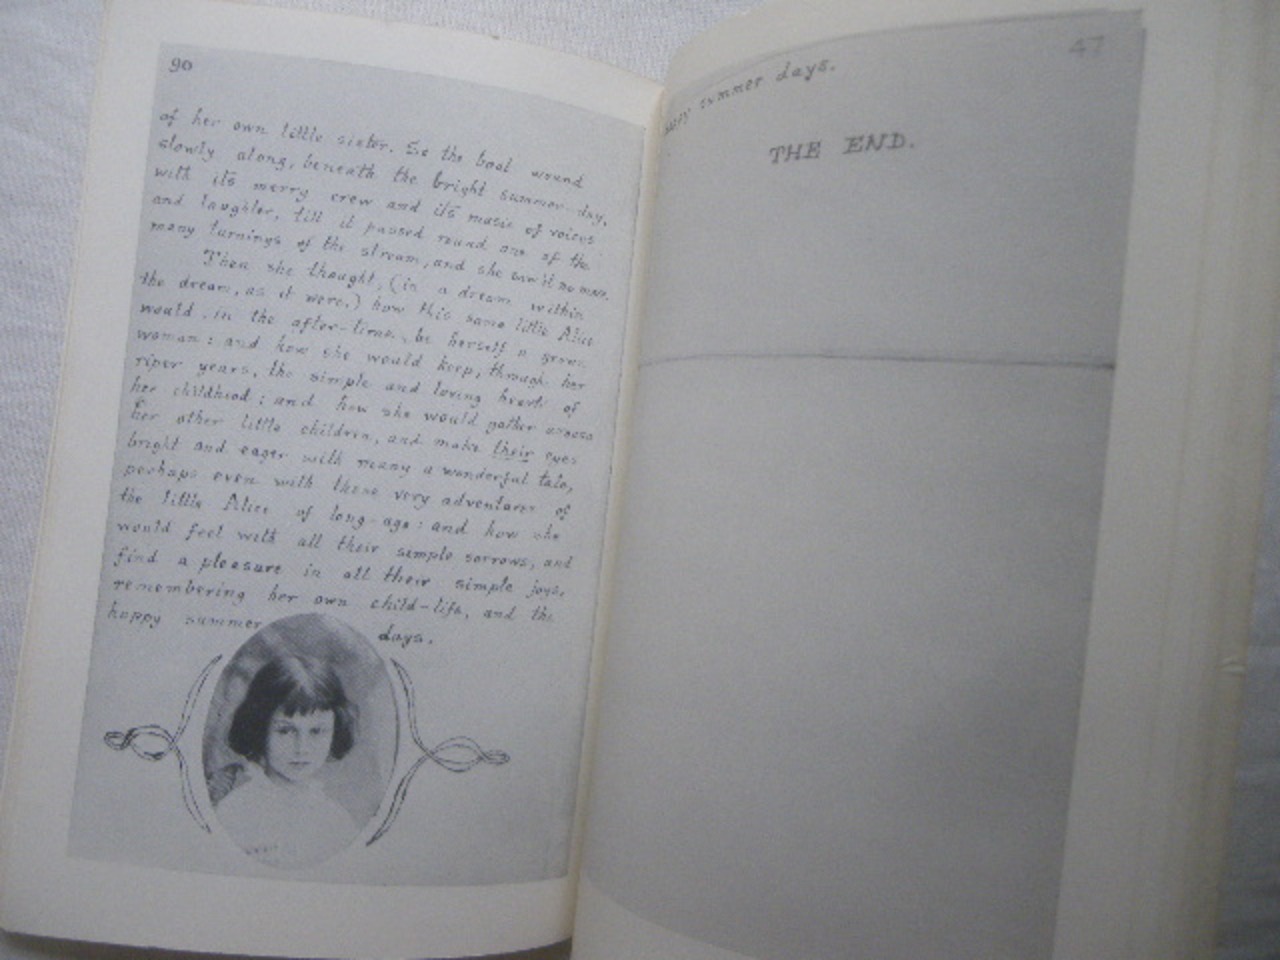 90
of her own little sister. So the boat wound
slowly along, beneath the bright summer-day,
with its merry crew and its music of voices
and laughter, till it passed round one of the
many turnings of the stream, and she saw it no more.
Then she thought, (in a dream within
the dream, as it were,) how this same little Alice
would, in the after-time, be herself a grown
woman: and how she would keep, through her
riper years, the simple and loving heart of
her childhood: and how she would gather around
her other little children, and make their eyes
bright and eager with many a wonderful tale,
perhaps even with these very adventures of
the little Alice of long-ago: and how she
would feel with all their simple sorrows, and
find a pleasure in all their simple joys,
remembering her own child-life, and the
happy summer days.
47
happy summer days.
THE END.